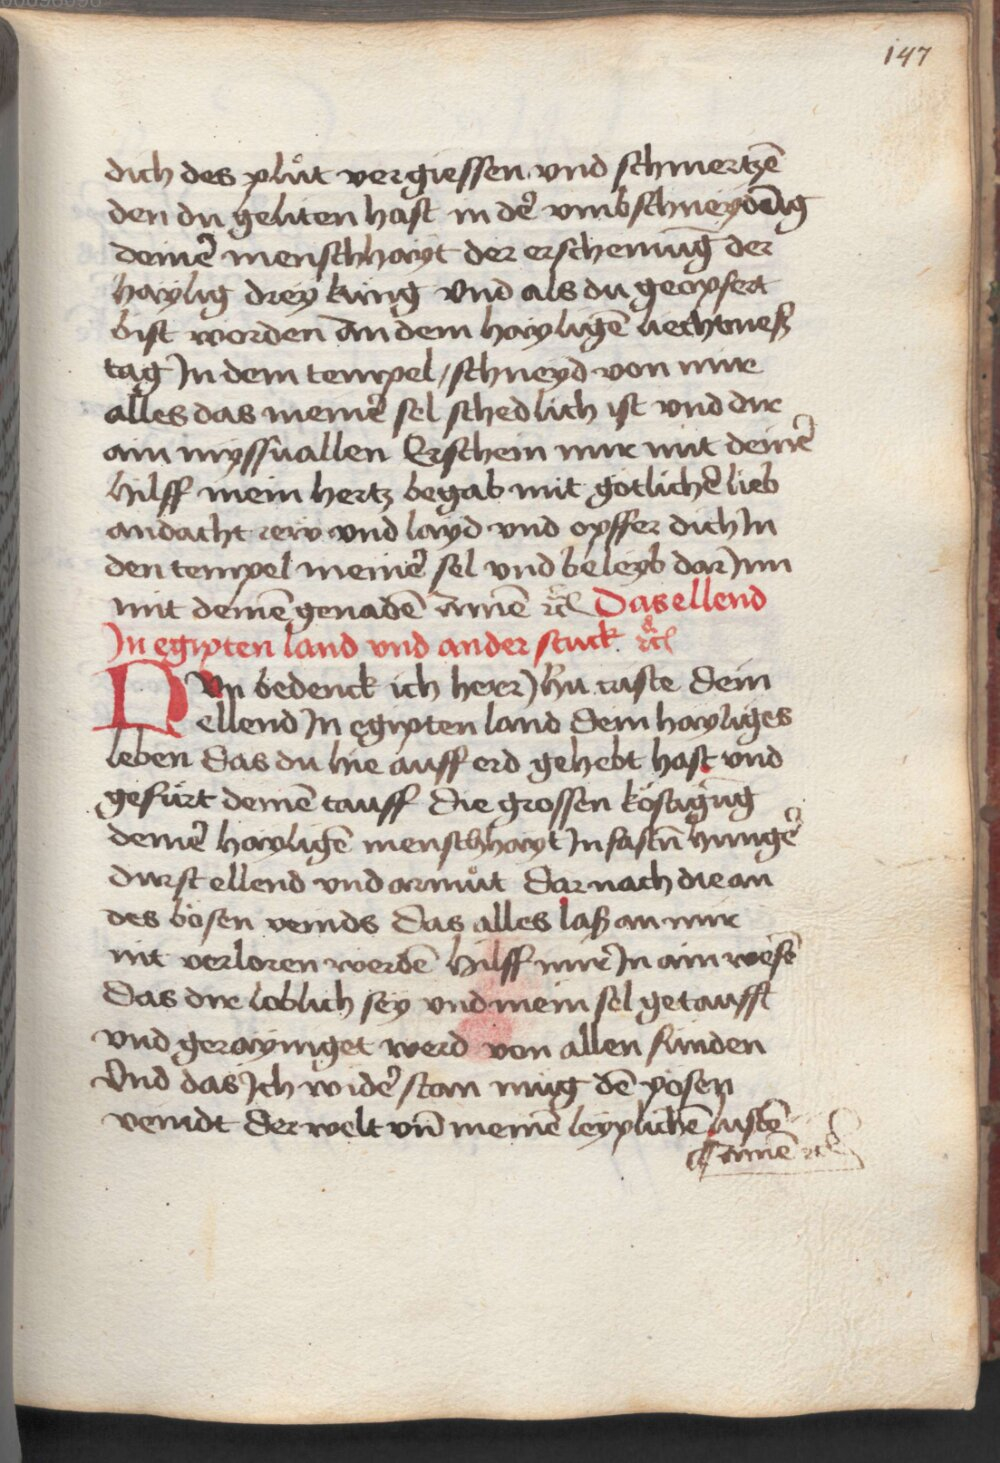 147
dich des plůt vergiessen vnd schmertzē
den du geliten hast in der̄ vmbschneydūg
deiner̄ menschhayt der erscheinūg der
haylig drey kung Vnd als du geopfert
bist worden An dem hayligē liechtmeß
tag In dem tempel / schneyd von mir
alles das meiner̄ sel schedlich ist vnd dir
ain myssuallen Erschein mir mit deiner̄
hilff mein hertz begab mit gotlicher̄ lieb
andacht rew vnd layd vnd opffer dich In
den tempel meiner̄ sel vnd beleyb dar Inn
mit deinē genadē Amē ꝛc̄ Das ellend
In egipten land vnd ander stuck ꝛc̄
DVn bedenck ich herr Jhū raste dein
ellend In egipten land Dein hayliges
leben Das du hie auff erd gehebt hast vnd
gefürt deinē tauff Die grossen köstigūg
deiner̄ hayligē menschhayt In fastn̄ hunger̄
durst ellend vnd armůt Dar nach die an
des bösen veinds Das alles laß an mir
nit verloren werdē Hilff mir̄ In ain wesē
Das dir loblich sey vnd mein sel getaufft
vnd gerayniget werd von allen sunden
Vnd das Ich wider̄ stan mug dē posen
veindt Der welt vn̄ meinē leyplichē lustē
Amē ꝛc̄